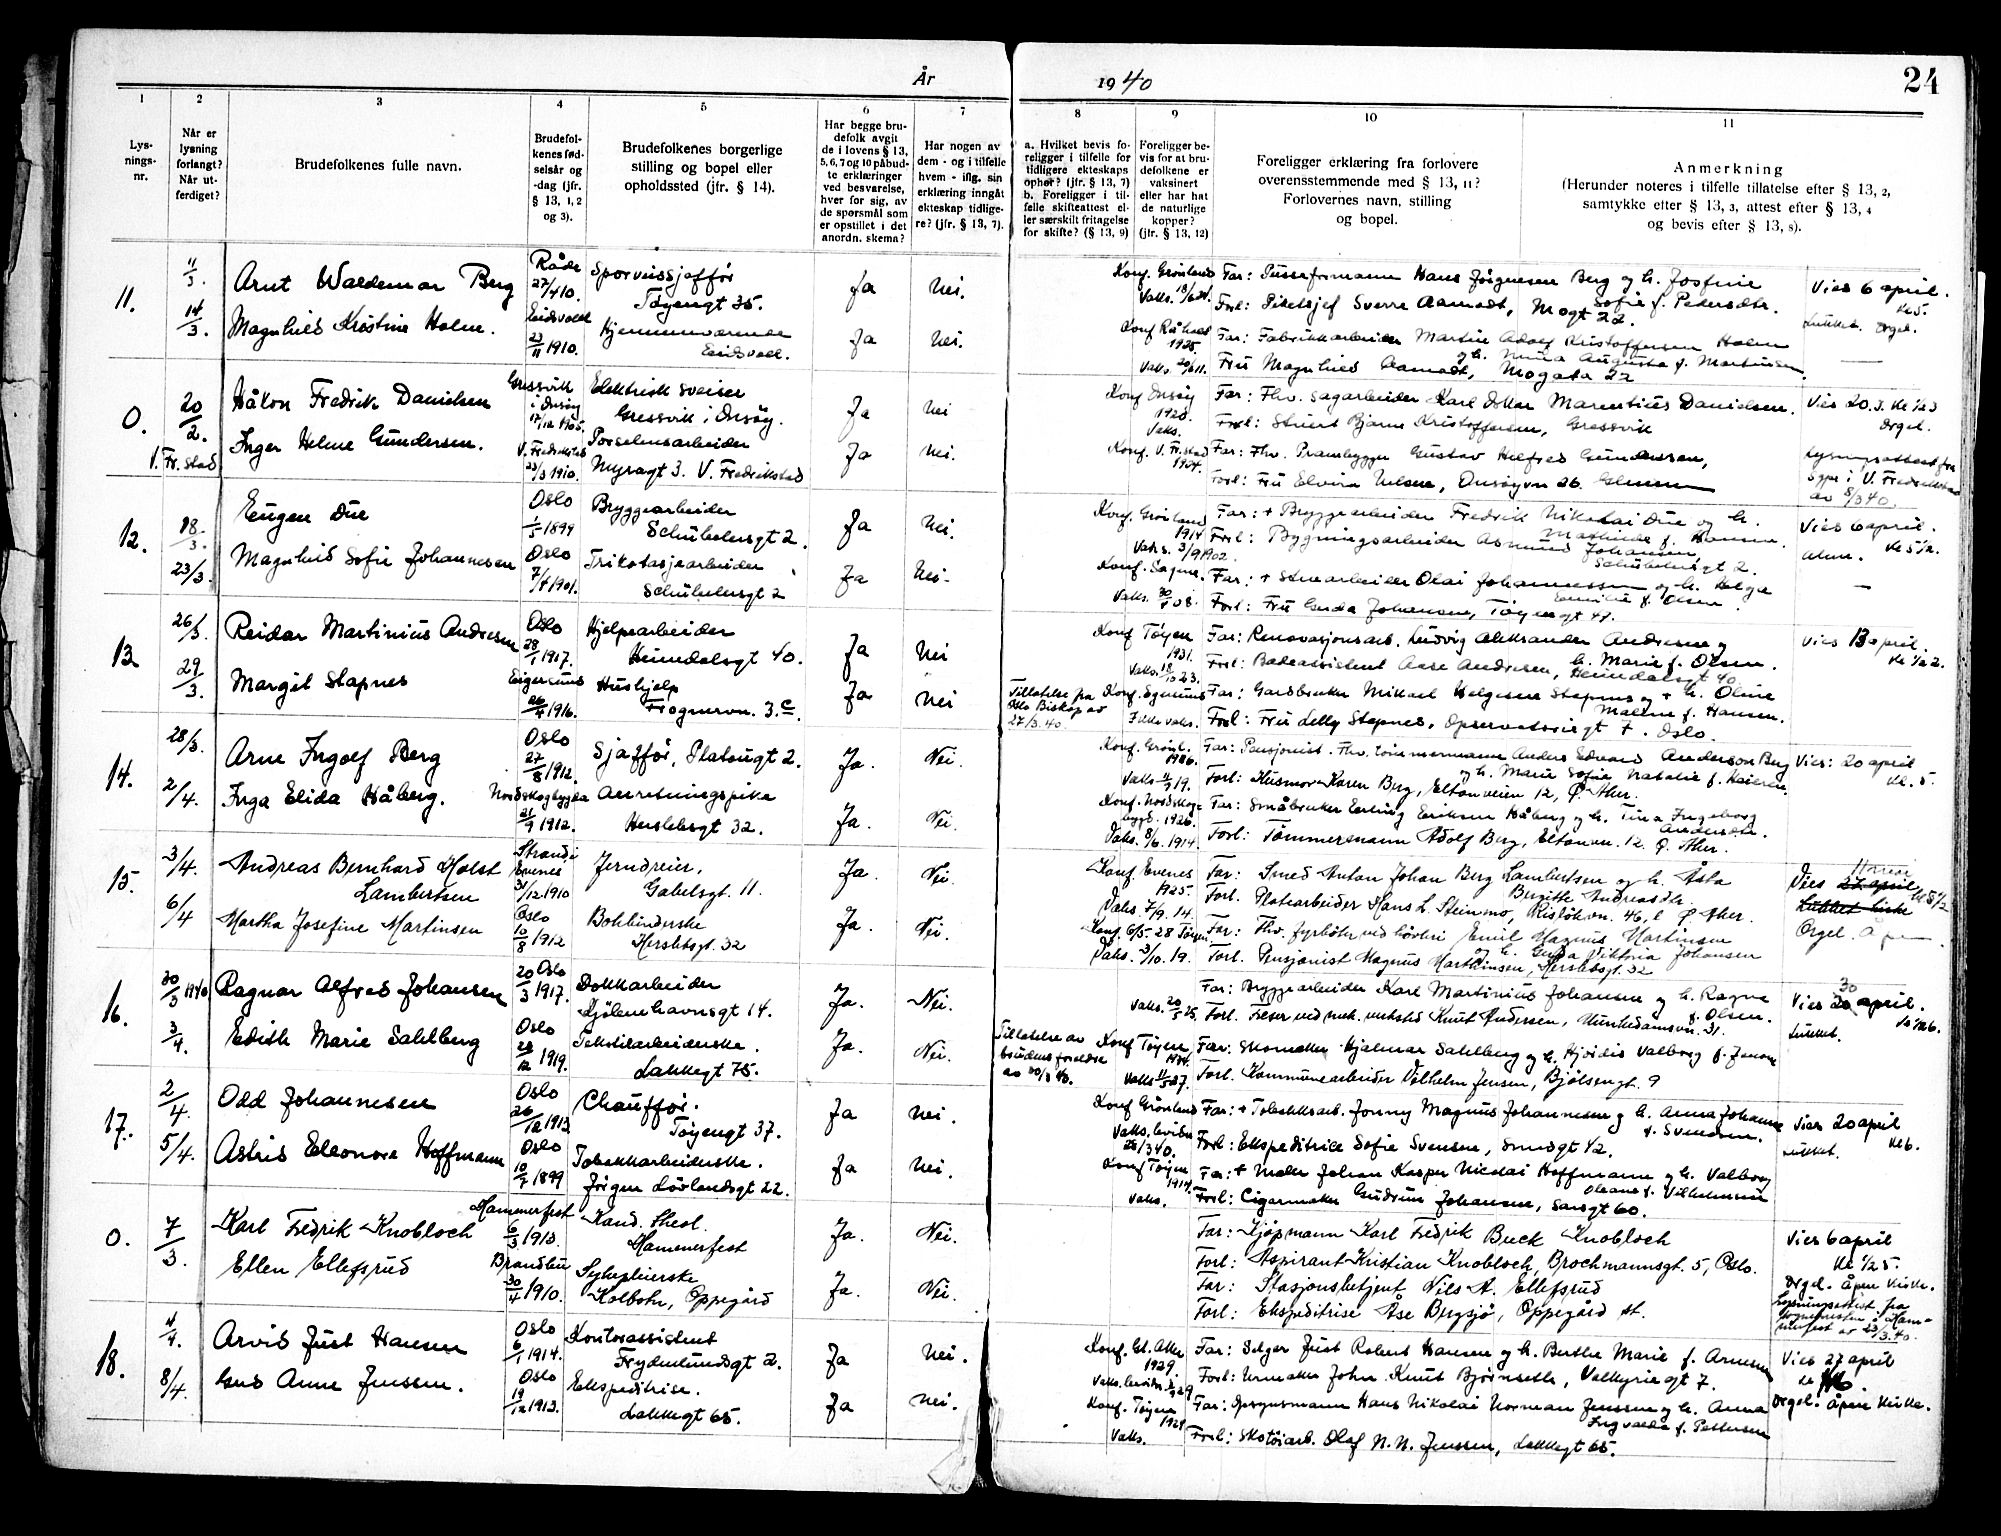 År 1940
24
1 2 3 4 5 6 7 8 9 10 11
Lys-
nings-
nr.
Når er
lysning
forlangt?
Når ut-
ferdiget?
Brudefolkenes fulle navn.
Brudefol-
kenes fød-
selsår og
-dag (jfr.
§ 13, 1, 2
og 3).
Brudefolkenes borgerlige
stilling og bopel eller
opholdssted (jfr. § 14).
Har begge bru-
defolk avgit
de i lovens § 13,
5, 6, 7 og 10 påbud-
te erklæringer
ved besvarelse,
hver for sig, av
de spørsmål som
er opstillet i det
anordn. skema?
Har nogen av
dem - og i tilfelle
hvem - iflg. sin
erklæring inngått
ekteskap tidlige-
re? (jfr. § 13, 7).
a. Hvilket bevis fo-
religger i tilfelle for
tidligere ekteskaps
ophør? (jfr. § 13, 7)
b. Foreligger i til-
felle skifteattest el-
ler særskilt fritagelse
for skifte? (§ 13, 9)
Foreligger be-
vis for at bru-
defolkene er
vaksinert
eller har hat
de naturlige
kopper?
(jfr. § 13, 12)
Foreligger erklæring fra forlovere
overensstemmende med § 13, 11?
Forlovernes navn, stilling
og bopel.
Anmerkning
(Herunder noteres i tilfelle tillatelse efter § 13, 2,
samtykke efter § 13, 3, attest efter § 13, 4
og bevis efter § 13, 8).
11.
11/3
14/3
Arnt Waldemar Berg
Magnhild Kristine Holm.
Råde
27/4 10.
Eidsvoll
23/11 1910.
Sporveissjaffør
Tøyengt 35.
Hjemmeværende
Eidsvoll.
Ja Nei.
Ja Nei.
Konf. Grønland
Konf Råholt
1925.
Far: Pusseformann Hans Jørgensen Berg og h. Josefine
Sofie f. Pedersdtr.
Forl: Sverre Aamodt, Mogt 22.
Far: Fabrikkarbeider Martin Adolf Kristoffersen Holm
og h. Mina Augusta f. Martinsen.
Fru Magnhild Aamodt, Mogata 22
Vies 6 april.
Kl 5.
Lukket. Orgel.
0.
V. Fr.stad
20/2.
Håkon Fredrik Danielsen
Inger Helene Gundersen.
Gressvik
i Onsøy
17/12 1905.
V. Fredrikstad
23/3 1910.
Elektrisk sveiser
Gressvik i Onsøy.
Porselensarbeider
Myragt 3. V. Fredrikstad
Ja Nei
Ja Nei.
Konf Onsøy
1920.
Vaks.
Konf. V. Fr.stad
1924.
Far: Fhv. sagarbeider Karl Oskar Marentius Danielsen.
Forl: Stuert Bjarne Kristoffersen, Gressvik
Far: Fhv. Prambygger Gustav Helfred Gundersen,
Forl: Fru Elvira Nilsen, Onsøyvn 26. Glemmen
Vies 20.3. Kl 1/2 3
Orgel.
Lysningsattest fra
Sgpr i V. Fredrikstad
av 8/3 40.
12.
18/3.
23/3.
Eugen Due
Magnhild Sofie Johannesen
Oslo
1/5 1899
Oslo
7/4 1901.
Bryggearbeider
Schübelersgt 2.
Trikotasjearbeider
Schübelersgt 2
Ja Nei.
Ja Nei.
Konf. Grønland
1914
Vaks. 3/9 1902.
Konf. Sagene.
Vaks. 30/5 08.
Far: + Bryggearbeider Fredrik Nikolai Due og h.
Mathilde f. Hansen.
Forl: Bygningsarbeider Asmund Johansen,
Schübelersgt 2.
Far: + Stuearbeider Olai Johannessen og h. Helga
Emilie f. Olsen.
Forl: Fru Gerda Johansen, Tøyengt 47.
Vies 6 april.
Kl 5 1/2.
13
26/3.
29/3.
Reidar Martinius Andresen
Margit Stapnes
Oslo
28/1 1917.
Eigersund
26/4 1916.
Hjelpearbeider
Heimdalsgt 40.
Hushjelp
Frognervn. 3.c.
Ja Nei
Ja Nei
Tillatelse fra
Oslo Biskop av
27/3.40.
Konf Tøyen
1931.
Vaks. 18/10 23.
Konf. Egersund
Ikke vaks.
Far: Renovasjonsarb. Ludvig Aleksander Andresen og
h. Marie f. Olsen.
Forl: Badeassistent Aase Andresen, Heimdalsgt 40.
Far: Gardbruker Mikael Helgesen Stapnes og + h. Oline
Malene f. Hansen.
Forl: Fru Lelly Stapnes, Opservatoriegt +. Oslo.
Vies 13 april.
Kl 1/2 2.
14.
28/3.
2/4.
Arne Ingolf Berg
Inga Elida Håberg.
Oslo
27/8 1912.
Nordskogbygda
21/9 1912.
Sjaffør, Platougt 2.
Anretningspike
Herslebsgt 32.
Ja. Nei.
Ja. Nei.
Konf. Grønl.
1926.
Vaks 11/3 19.
Konf. Nordskog-
bygd. 1926.
Vaks. 8/6. 1914
Far: Pensjonist. Fhv. tømmermann Anders Edvard Anderson Berg
og h. Marie Sofie Natalie f. Kaierin.
Forl: Husmor Karen Berg, Eltonveien 12, Ø. Aker.
Far: Småbruker Erling Eriksen Håberg og h. Tina Ingeborg
Andersdtr.
Forl: Tømmermann Adolf Berg, Eltonvn. 12 Ø. Aker.
Vies: 20 april
Kl. 5.
15.
3/4
6/4
Andreas Bernhard Holst
Lambertsen
Martha Josefine Martinsen
Strand i
Evenes
31/12 1910
Oslo
10/8 1912
Jerndreier,
Gabelsgt. 11.
Bokbinderske
Herslebsgt. 32
Ja. Nei.
Ja. Nei.
Konf Evenes
1925.
Vaks 7/9. 14.
Konf. 6/5. 28 Tøyen
Vaks. 3/10. 19.
Far: Smed Anton Johan Berg Lambertsen og h. Åsta
Birgitte Andreasdtr.
Forl. Platearbeider Hans L. Steinmo, Risløkvn. 46, l Ø. Aker.
Far: Fhv. fyrbøter ved Emil Magnus Martinsen
og h. Gerda Viktoria Johansen
Forl. Pensjonist Magnus Martinsen, Herslebsgt. 32
Vies 27 april
Kl 5 1/2
Lukket kirke
Orgel.
16.
30/3 1940
3/4.
Ragnar Alfred Johansen
Edith Marie Sahlberg
20/3 Oslo 1917.
Oslo
28/12 1919.
Dokkarbeider
Kjølenhavnsgt 14.
Tekstilarbeiderske.
Lakkegt 75.
Ja. Nei.
Ja. Nei.
Tillatelse av
brudens foreldre
av 30/3 40.
Vaks. 20/5 25.
Konf Tøyen
1934.
Vaks 11/5 27.
Far: Bryggearbeider Karl Martinius Johansen og h. Ragna
f. Olsen.
Forl. Freser ved mek. verksted Knut Andersen, Munkedamsvn. 31.
Far: Skomaker Hjalmar Sahlberg og h. Hjørdis Valborg f. Jensen
Forl. Kommunearbeider Vilhelm Jensen, Bjølsengt. 9
30
Vies 20 april.
Kl 1/2 6.
Lukket.
17.
2/4.
5/4.
Odd Johannesen
Astrid Eleonora Hoffmann
Oslo
26/12 1913
Oslo
10/7 1899
Chauffør.
Tøyengt 37.
Tobakkarbeiderske.
Jørgen Løvlandsgt 22.
Ja Nei.
Ja Nei.
Konf Grønland
Konf Tøyen
1914.
Vaks.
Far: + Tobakksarb. Jonny Magnus Johannesen og h. Anna Johanne
f. Svendsen.
Forl: Ekspeditrice Sofie Svensen, Smedgt 1/2.
Far: + Maler Johan Kasper Nicolai Hoffmann og h. Valborg
Oleane f. Vilhelmsen
Forl: Cigarmaker Gudrun Johansen, Sarsgt 60.
Vies 20 april
Kl 6.
Lukket.
0.
7/3
Karl Fredrik Knobloch
Ellen Ellefsrud
Hammerfest
6/3 1913.
Brandbu
30/4 1910.
Kand. theol.
Hammerfest
Sykepleierske
Kolbotn, Oppegård
Ja. Nei.
Ja. Nei.
Far: Kjøpmann Karl Fredrik Buck Knobloch
Forl: Aspirant Kristian Knobloch, Brochmannsgt. 5, Oslo.
Far: Stasjonsbetjent Nils A. Ellefsrud
Forl: Ekspeditrise Åse Bergsjø, Oppegård st.
Vies 6 april
Kl 1/2 5.
Orgel. Åpen kirke.
Lysningsattest fra
sognepresten i Ham-
merfest av 23/3.40.
18.
4/4.
8/4.
Arvid Just Hansen
Gud Anne Jenssen.
Oslo
6/1 1914.
Oslo
19/12 1913.
Kontorassistent
Frydenlundsgt 2.
Ekspeditrise.
Lakkegt 65.
Ja Nei.
Ja Nei.
Konf. Gl. Aker
1929
Konf. Tøyen
1928
Vaks.
Far: Selger Just Robert Hansen og h. Berthe Marie f. Arnesen
Forl: Urmaker John Knut Bjørnseth, Valkyriegt 7.
Far: Opsynsmann Hans Nikolai Norman Jenssen og h. Anna
Ingvalda f. Pettersen
Forl: Skotøiarb. Olaf N. N. Jenssen, Lakkegt 65.
Vies 27 april
Kl
Orgel. Åpen kirke.